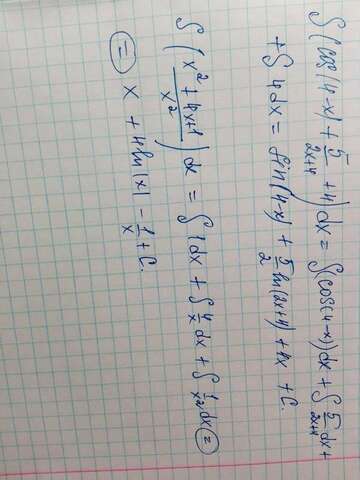 ∫(cos(4-x) + 5/(2x+4) + 4)dx = ∫(cos(4-x))dx + ∫ 5/(2x+4) dx +
+ ∫ 4dx = sin(4-x) + 5/2 ln(2x+4) + 4x + C.
∫ ((x² + 4x+1)/x²) dx = ∫ 1dx + ∫ 4/x dx + ∫ 1/x² dx =
= x + 4ln|x| - 1/x + C.